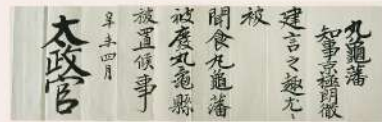 丸龜藩
知事京極朗徹
建言之趣尤ニ
被
聞食丸龜藩
被廢丸龜縣
被置候事
辛未四月
太政官